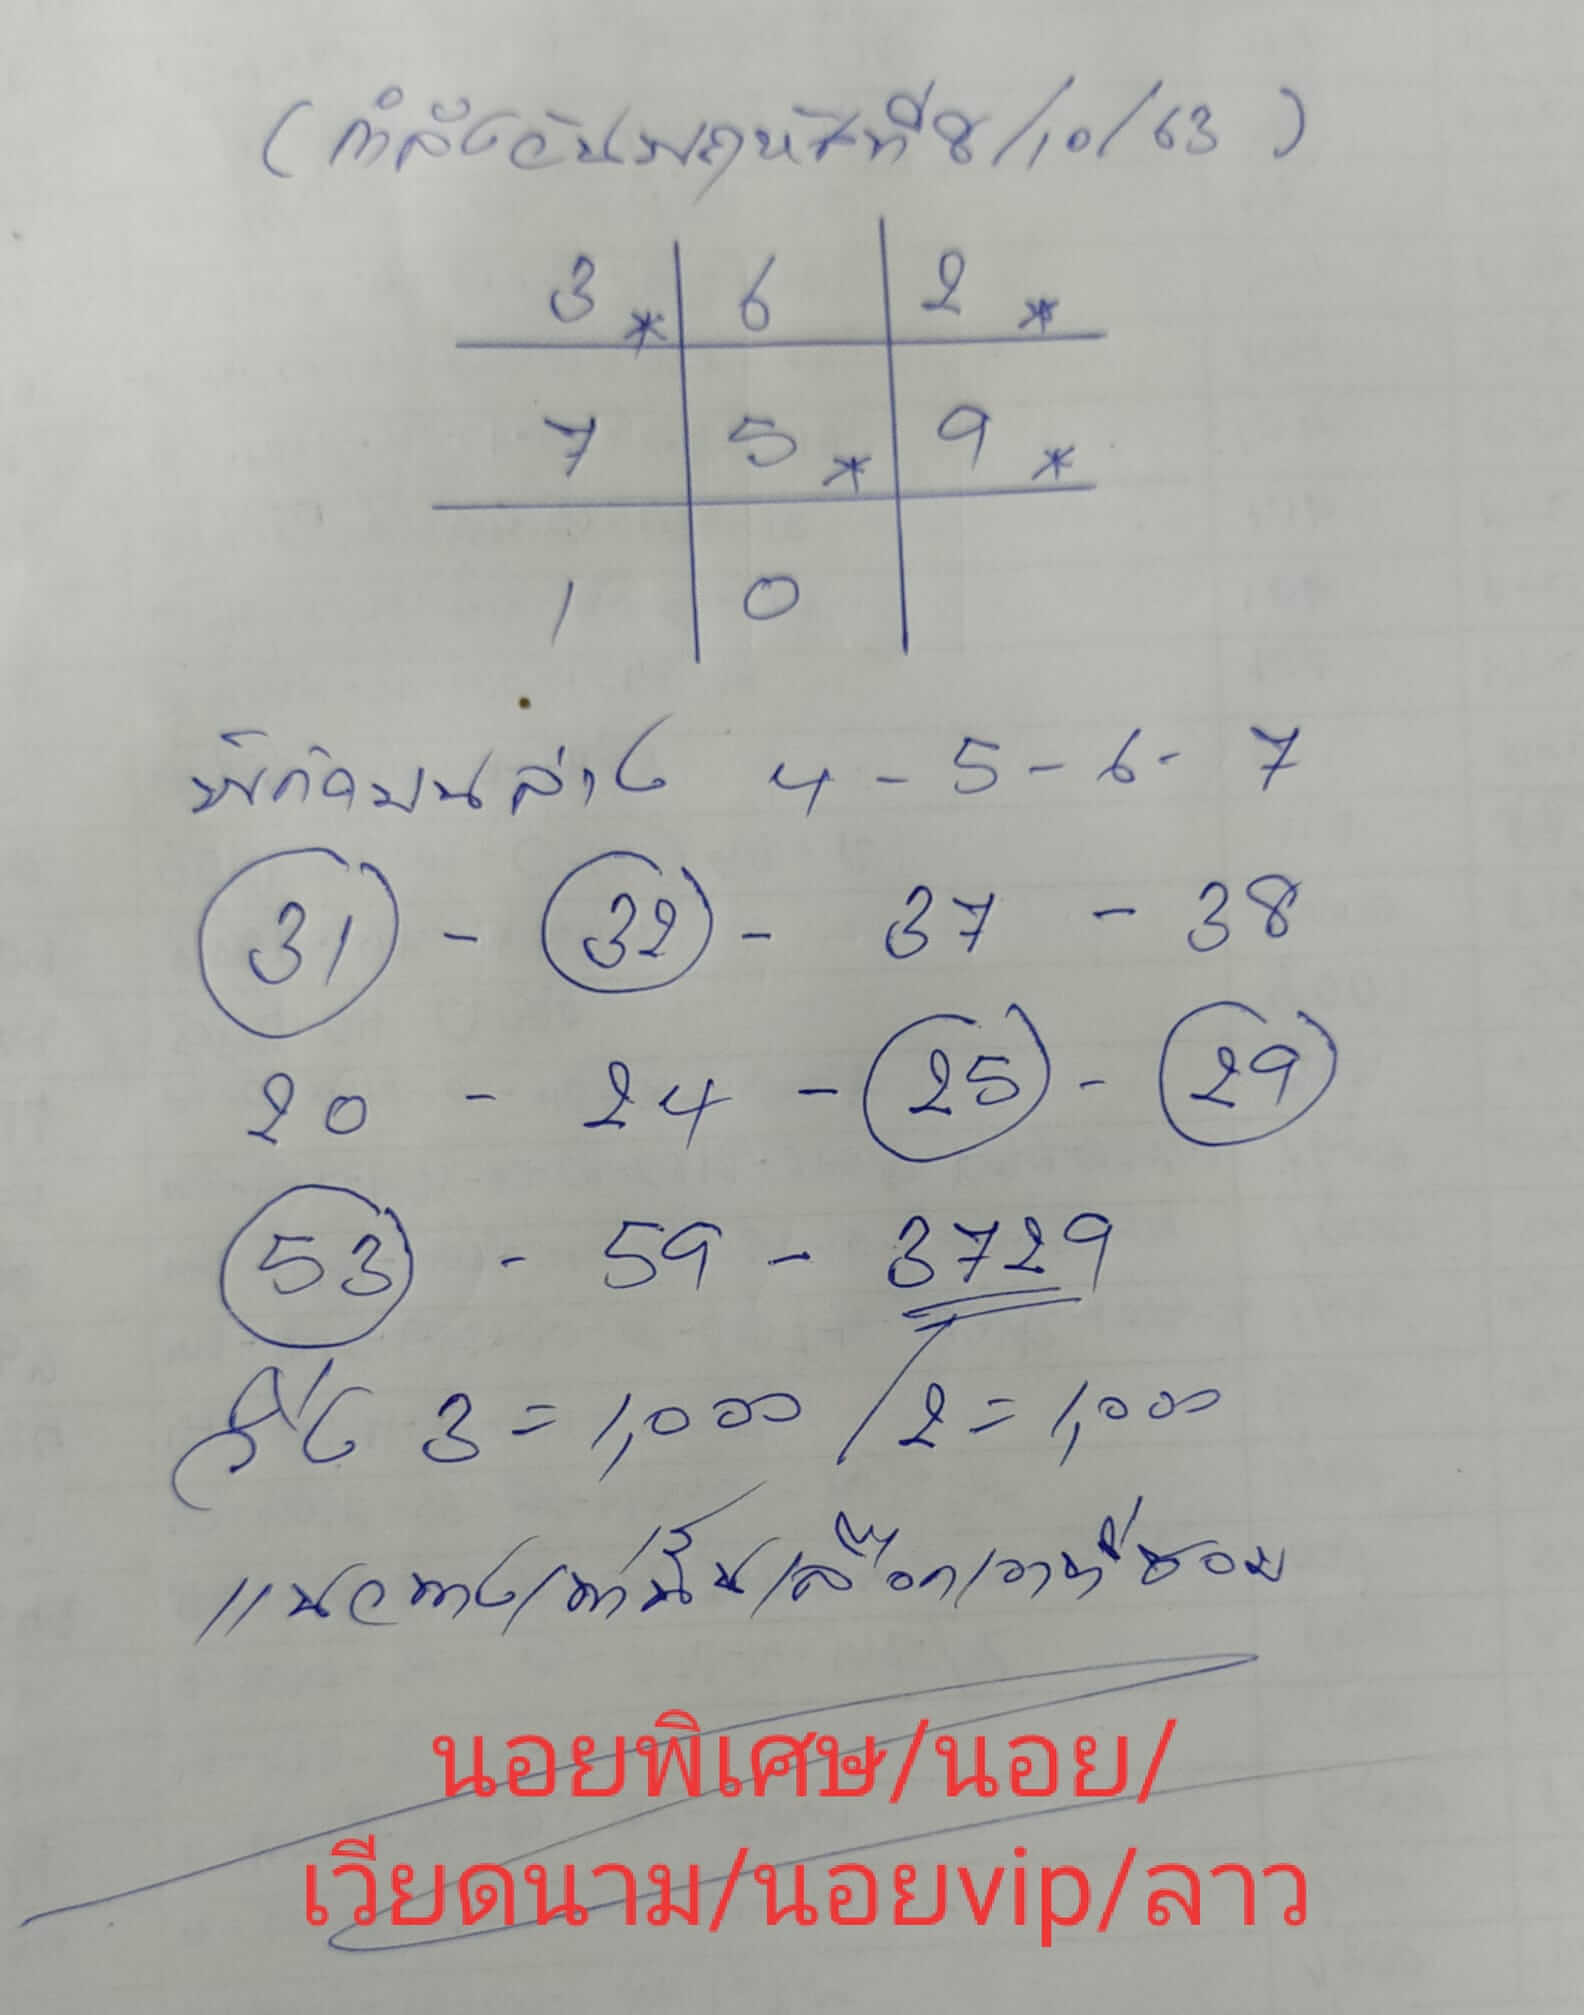 (กำลังวันพฤหัสที่ 8/10/63)
3* 6 2*
7 5* 9*
1 0
พิกัดบนล่าง 4 - 5 - 6 - 7
31 - 32 - 37 - 38
20 - 24 - 25 - 29
53 - 59 - 3729
วิ่ง 3 = 1,000 / 2 = 1,000
แนวทางเท่านั้นเลือกเอาที่ชอบ
นอยพิเศษ/นอย/
เวียดนาม/นอยvip/ลาว